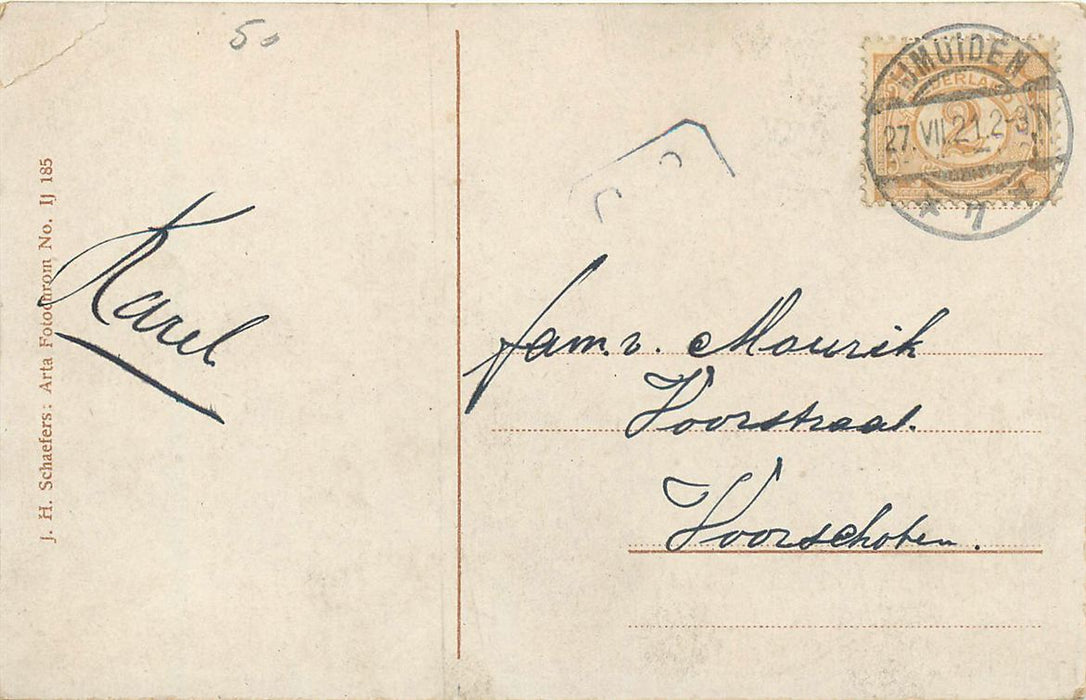 50
J. H. Schaefers: Arta Fotochrom No. IJ 185
Karel
IJMUIDEN
NEDERLAND
2
27.VII.21.2-3N
* 7 *
fam. v. Mourik
Voorstraat.
Voorschoten.